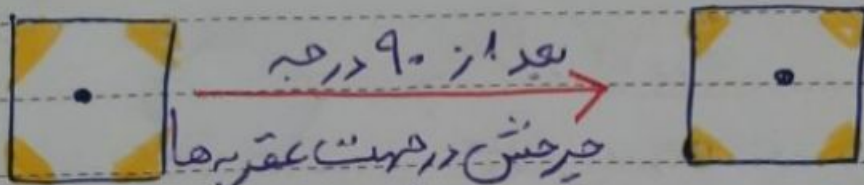 بعد از ۹۰ درجه
چرخش در جهت عقربه ها